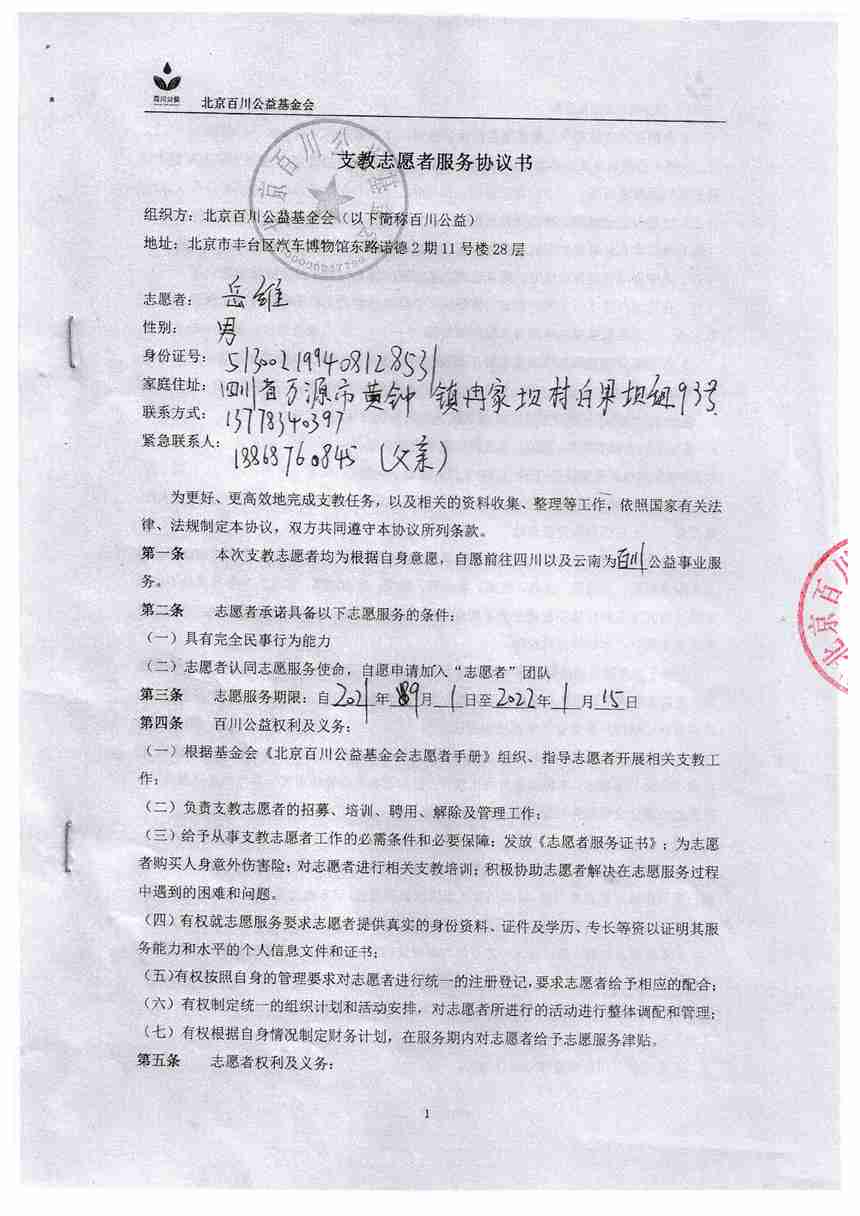 百川公益
北京百川公益基金会
支教志愿者服务协议书
组织方：北京百川公益基金会（以下简称百川公益）
地址：北京市丰台区汽车博物馆东路诺德2期11号楼28层
志愿者：岳雄
性别：男
身份证号：513002199408128531
家庭住址：四川省万源市黄钟镇冉家坝村白果坝组93号
联系方式：13778340397
紧急联系人：13868760845（父亲）
为更好、更高效地完成支教任务，以及相关的资料收集、整理等工作，依照国家有关法
律、法规制定本协议，双方共同遵守本协议所列条款。
第一条 本次支教志愿者均为根据自身意愿，自愿前往四川以及云南为百川公益事业服
务。
第二条 志愿者承诺具备以下志愿服务的条件：
（一）具有完全民事行为能力
（二）志愿者认同志愿服务使命，自愿申请加入“志愿者”团队
第三条 志愿服务期限：自2021年9月1日至2022年1月15日
第四条 百川公益权利及义务：
（一）根据基金会《北京百川公益基金会志愿者手册》组织、指导志愿者开展相关支教工
作；
（二）负责支教志愿者的招募、培训、聘用、解除及管理工作；
（三）给予从事支教志愿者工作的必需条件和必要保障；发放《志愿者服务证书》；为志愿
者购买人身意外伤害险；对志愿者进行相关支教培训；积极协助志愿者解决在志愿服务过程
中遇到的困难和问题。
（四）有权就志愿服务要求志愿者提供真实的身份资料、证件及学历、专长等资以证明其服
务能力和水平的个人信息文件和证书；
（五）有权按照自身的管理要求对志愿者进行统一的注册登记，要求志愿者给予相应的配合；
（六）有权制定统一的组织计划和活动安排，对志愿者所进行的活动进行整体调配和管理；
（七）有权根据自身情况制定财务计划，在服务期内对志愿者给予志愿服务津贴。
第五条 志愿者权利及义务：
1
北京百川